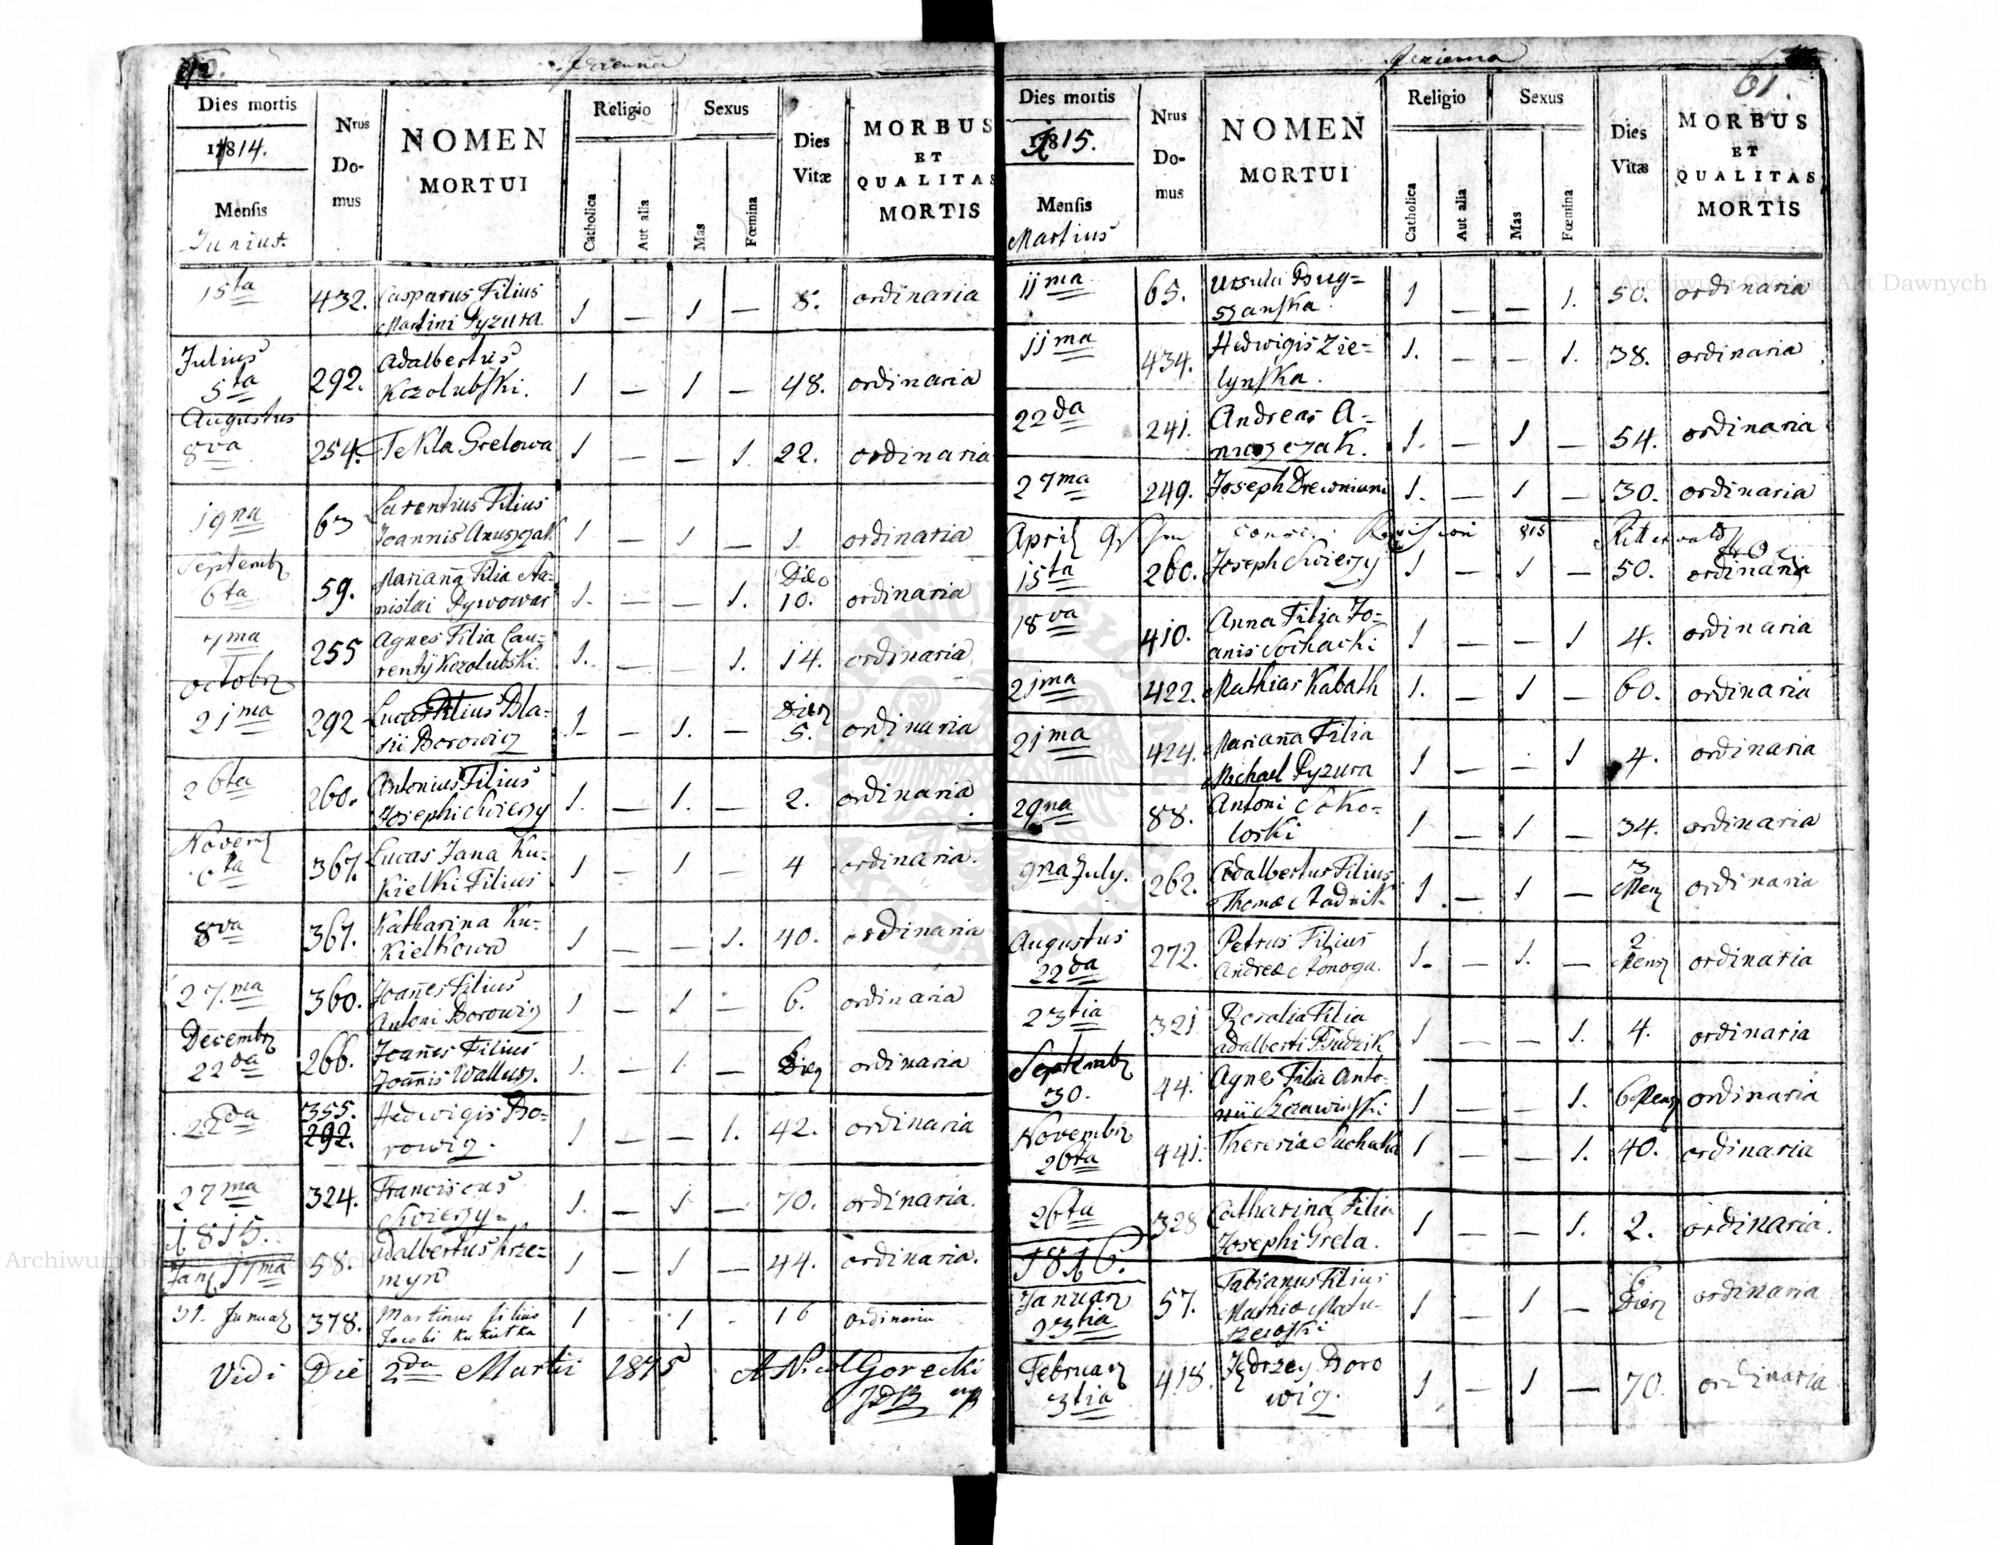 Jezienna
Dies mortis
1814.
Mensis
Junius.
Nrus
Do-
mus
NOMEN
MORTUI
Religio
Catholica
Aut alia
Sexus
Mas
Fœmina
Dies
Vitæ
MORBUS
ET
QUALITAS
MORTIS
15ta 432. Casparus Filius
Martini Pyzura 1 — 1 — 8. ordinaria
Julius
5ta 292. Adalbertus
Kozolubski. 1 — 1 — 48. ordinaria
Augustus
8va 254. Tekla Grelowa 1 — — 1. 22. ordinaria
19na 63 Laurentius Filius
Joannis Anuszczak 1 — 1 — 1. ordinaria
Septembr
6ta 59. Marianna Filia Sta-
nislai Pywowar 1. — — 1. 10. ordinaria
7ma 255 Agnes Filia Lau-
rentij Kozolubski. 1. — — 1. 14. ordinaria
Octobr
21ma 292 Lucas Filius Bla-
sii Borowicz 1 — 1. — Dies
5. ordinaria
26ta 260. Antonius Filius
Josephi Swierzy 1. — 1. — 2. ordinaria
Novem
6ta 367. Lucas Jana Ku-
kielki Filius 1 — 1 — 4 ordinaria.
8va 367. Katharina Ku-
kielkowa 1 — — 1. 40. ordinaria
27.ma 360. Joanes Filius
Antoni Borowicz 1 — 1 — 6. ordinaria
Decembr
22da 266. Joanes Filius
Joanis Wallusz. 1. — 1. — Dies ordinaria
22da 355.
292. Hedwigis Bo-
rowicz. 1 — — 1. 42. ordinaria
27ma 324. Franciscus
Swierzy 1. — 1 — 70. ordinaria.
1815.
Jan 17ma 58. Adalbertus Krze-
myn 1 — 1 — 44. ordinaria.
31. Januar 378. Martinus filius
Jacobi Kukiełka 1 1 - 16 ordinaria
Vidi Die 2da Martii 1815 Gorecki
Jezienna
61.
Dies mortis
1815.
Mensis
Martius
Nrus
Do-
mus
NOMEN
MORTUI
Religio
Catholica
Aut alia
Sexus
Mas
Fœmina
Dies
Vitæ
MORBUS
ET
QUALITAS
MORTIS
11ma 65. Ursula Bug-
szanska. 1 — — 1. 50. ordinaria
11ma 434. Hedwigis Zie-
lynska. 1. — — 1. 38. ordinaria
22da 241. Andreas A-
nuszczak. 1. — 1 — 54. ordinaria
27ma 249. Joseph Drewniani 1. — 1 — 30. ordinaria
April
15ta 260. Joseph Swierzy 1 — 1 — 50. ordinaria
18va 410. Anna Filia Jo-
anis Sochacki 1 — — 1 4. ordinaria
21ma 422. Mathias Kabath 1. — 1 — 60. ordinaria
21ma 424. Marianna Filia
Michael Pyzura 1 — - 1 4. ordinaria
29na 88. Antoni Soko-
loski 1 — 1 — 34. ordinaria
9na July. 262. Adalbertus Filius
Thomæ Stadnik 1. — 1 — 3
Mens ordinaria
Augustus
22da 272. Petrus Filius
Andreæ Stonoga. 1. — 1. — 2
Mens ordinaria
23tia 321 Rosalia Filia
Adalberti Dudzik 1 — — 1. 4. ordinaria
Septembr
30. 44. Agnes Filia Anto-
nii 1 — — 1. 6 Mens ordinaria
Novembr
26ta 441. Theresia Suchacka 1 — — 1. 40. ordinaria
26ta 328 Catharina Filia
Josephi Grela. 1 — — 1. 2. ordinaria.
1816.
Januar
23tia 57. Fabianus Filius
Mathiæ Matu-
szewski 1 — 1 — 6
Dies ordinaria
Februar
3tia 418. Jędrzey Boro
wicz. 1 — 1 — 70. ordinaria
Archiwum Główne Akt Dawnych